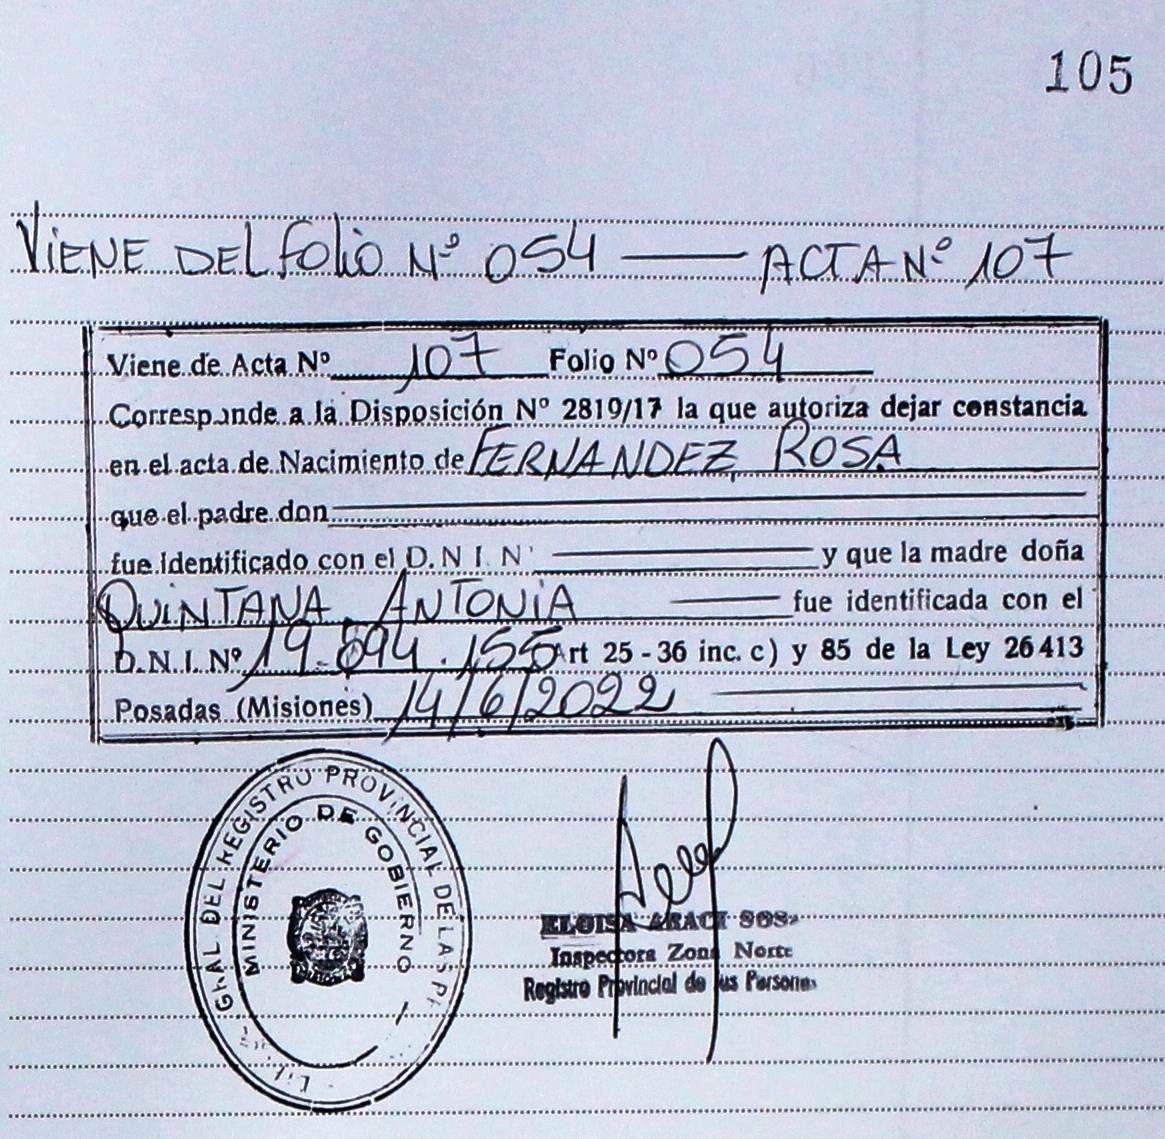 105
VIENE DEL FOLIO Nº 054 —— ACTA Nº 107
Viene de Acta Nº 107 Folio Nº 054
Corresponde a la Disposición Nº 2819/17 la que autoriza dejar constancia
en el acta de Nacimiento de FERNANDEZ ROSA
que el padre don
fue identificado con el D.N.I. Nº —— y que la madre doña
QUINTANA ANTONIA —— fue identificada con el
D.N.I. Nº 19.894.155 Art 25-36 inc. c) y 85 de la Ley 26413
Posadas (Misiones) 14/6/2022
GRAL DEL REGISTRO PROVINCIAL DE LAS
MINISTERIO DE GOBIERNO
ELOISA ARACI SOSA
Inspectora Zona Norte
Registro Provincial de las Personas